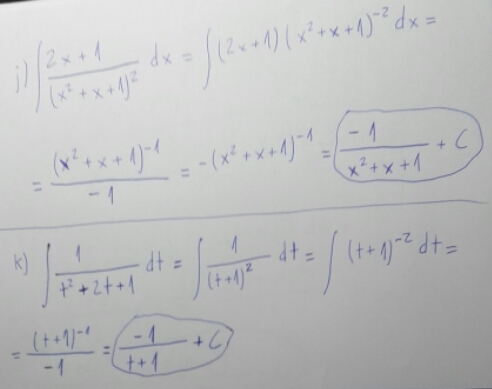 j) ∫ (2x+1)/(x²+x+1)² dx = ∫(2x+1)(x²+x+1)⁻² dx =
= (x²+x+1)⁻¹/-1 = -(x²+x+1)⁻¹ = -1/(x²+x+1) + C
k) ∫ 1/(t²+2t+1) dt = ∫ 1/(t+1)² dt = ∫ (t+1)⁻² dt =
= (t+1)⁻¹/-1 = -1/(t+1) + C